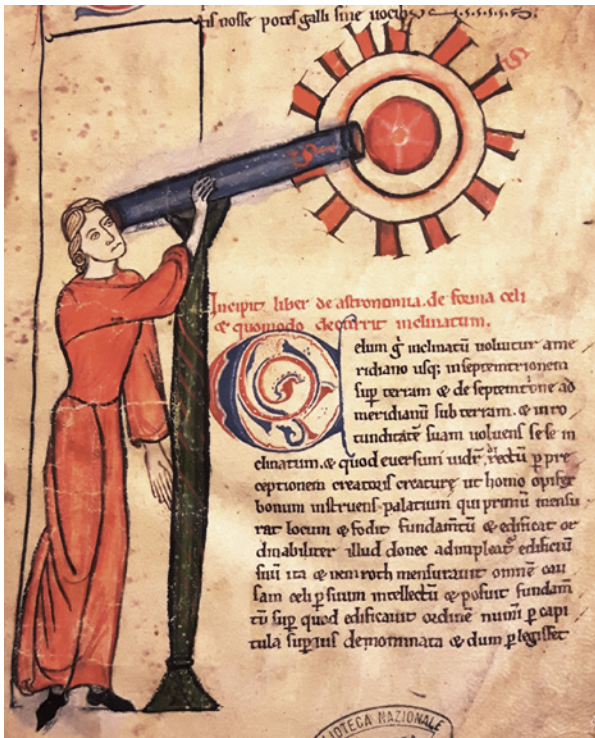 nosse potes galli sine uocib
S
Incipit liber de astronomia. de forma celi
& quomodo decurrit inclinatum.
Celum g̅ inclinatũ uoluitur ame
ridiano usq; in septemtrionem
sup terram & de septemtrione ad
meridianũ sub terram. & in ro
tunditatẽ suam uoluens se se in
clinatum. & quod euersum uidet̅ rectũ p pre
ceptionem creatoris creature ut homo opifex
bonum instruens palatium qui primũ mensu
rat locum & fodit fundamtũ & edificat or
dinabiliter illud donec adimpleat edificiũ
suũ ita & nemroth mensurauit omnẽ cau
sam celi p suum intellectũ & posuit fundam
tũ sup quod edificauit ordinẽ numi p capi
tula superius denominata & dum plegisset
BIBLIOTECA NAZIONALE